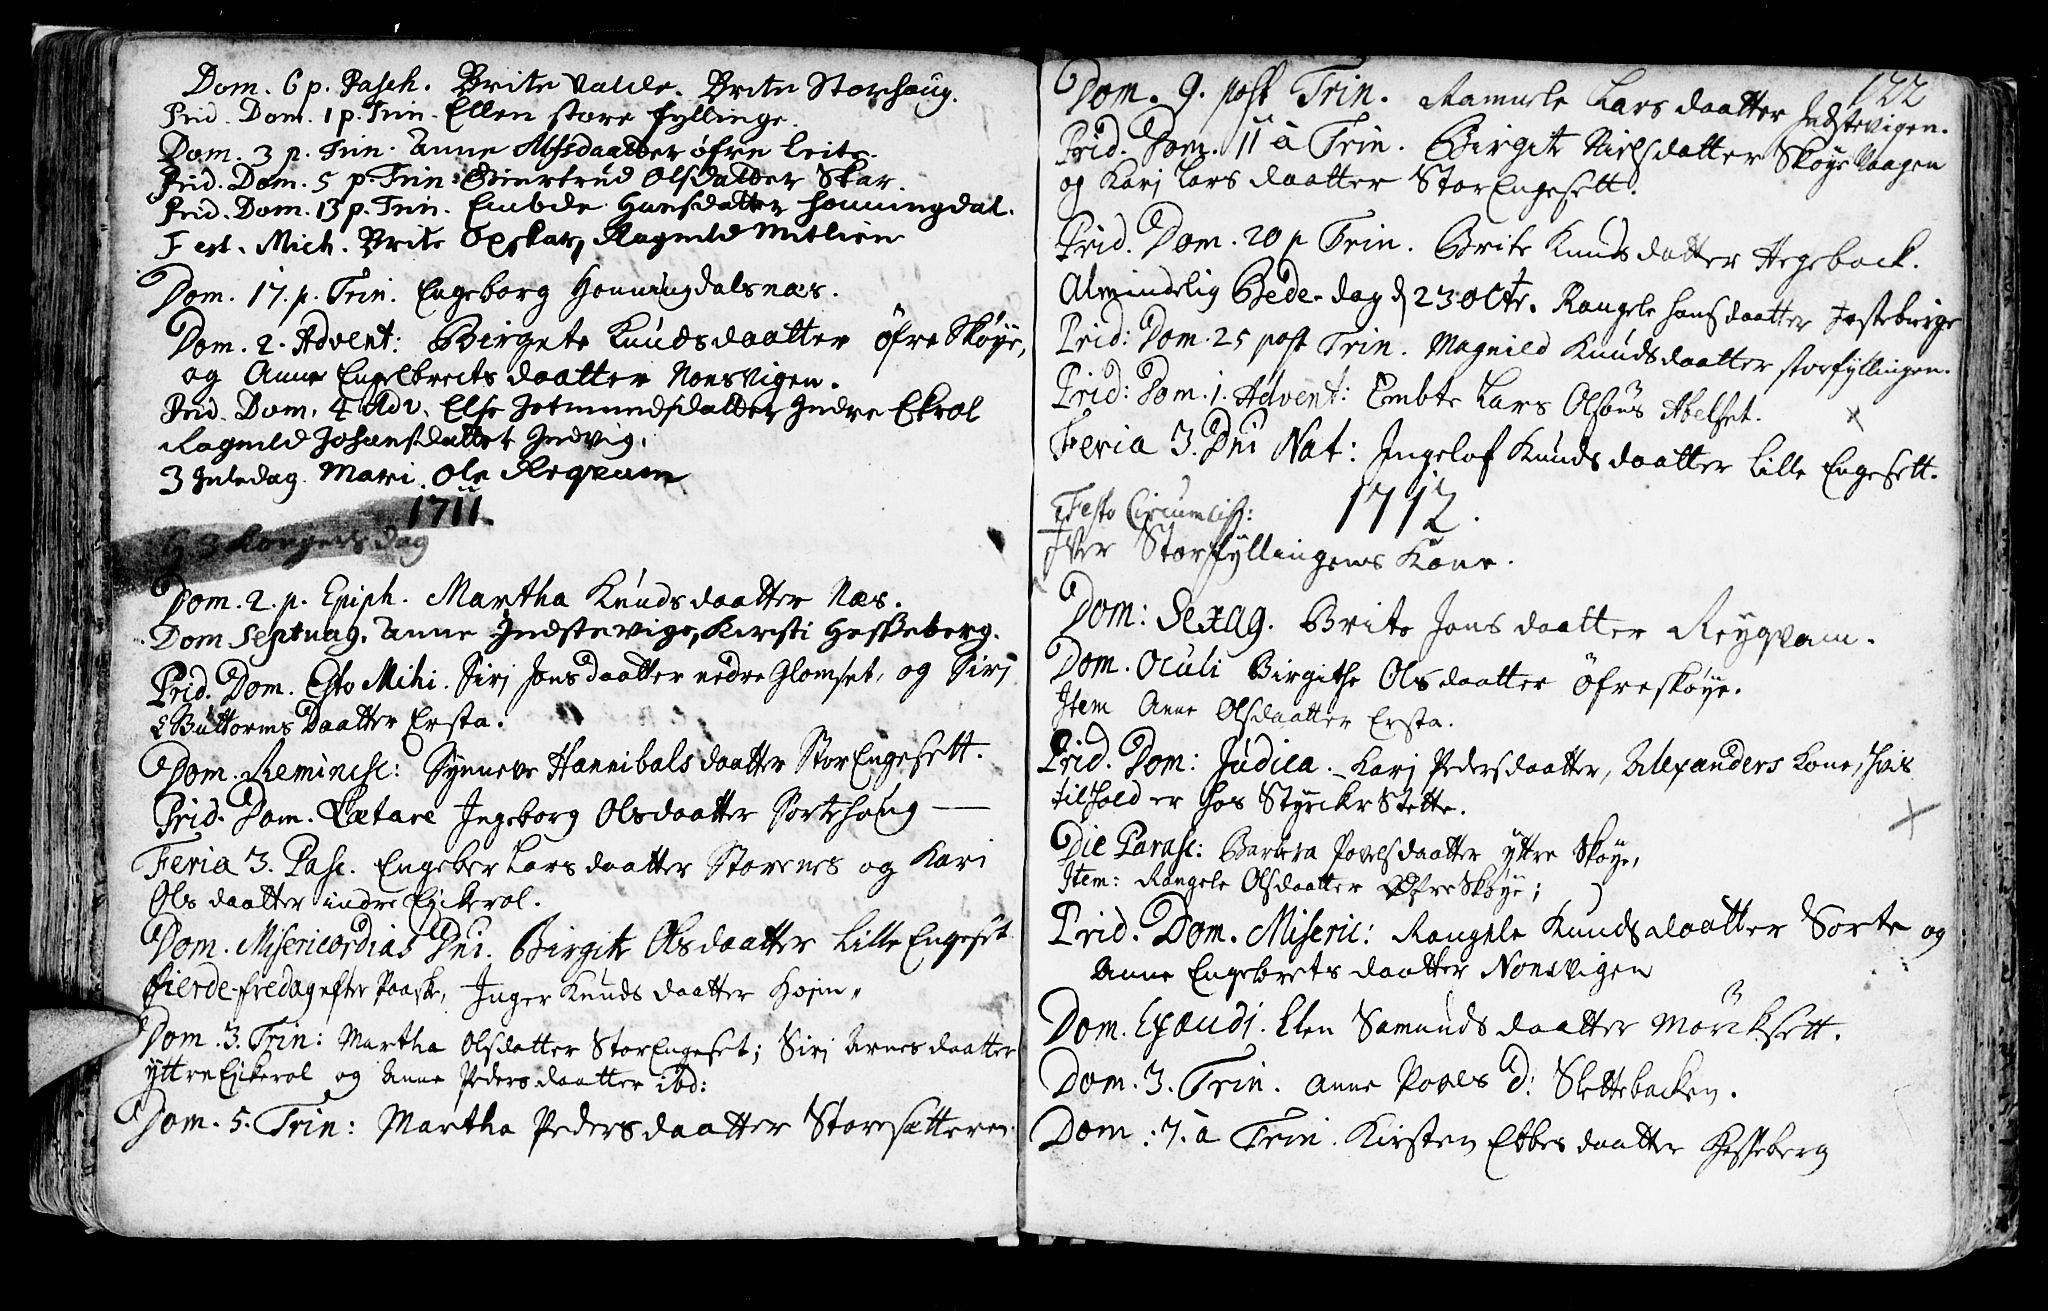 Dom. 6 p. Pasch. Brite Valde. Brite Storhaug.
Prid. Dom. 1 p. Trin. Ellen store fyllinge.
Dom. 3 p. Trin. Anne daatter øfre Leite.
Prid. Dom. 5 p. Trin. Giertrud Olsdatter Skar.
Prid. Dom. 13 p. Trin. Embde Hansdatter Honningdal.
Fest. Mich. Brite Opskar, Ragnild Midlien
Dom. 17. p. Trin. Engeborg Honningdalsnæs.
Dom. 2. Advent: Birgete Knudsdaatter öfre Sköye,
og Anne Engelbreits daatter Nonsvigen.
Prid. Dom. 4 Adv. Else Jetmundsdatter Indre Ekrol
Ragnild Johansdatter Indvig.
3 Juledag. Mari. Ole Reqvam
1711.
H 3 Kongers dag
Dom. 2. p. Epiph. Martha Knuds daatter Næs.
Dom Septuag. Anne Indstevige, Kirsti Hesseberg.
Prid. Dom. Esto Mihi. Siri Jons daatter nedre Glomset, og Siri
Guttorms Daatter Ersta.
Dom. Reminisc: Synneve Hannibals daatter StorEngesett.
Prid. Dom. Lætare Ingeborg Olsdaatter Sortehoug —
Feria 3. Pasc. Engeber Lars daatter Storenes og Kari
Ols daatter indre Eickerol.
Dom. Misericordias Dni. Birgite Olsdaatter Lille Engeset.
fierde fredag efter Paaske, Inger Knuds daatter Hosen.
Dom. 3. Trin: Martha Olsdatter StorEngeset; Siri Arnes daatter
yttre Eickerol og Anne Peders daatter ibd:
Dom. 5. Trin: Martha Peders daatter Storesætteren.
122
Dom. 9. post Trin. Ramele Lars daatter Indstevigen.
Prid. Dom. 11 à Trin. Birgite Nielsdatter Sköye Vaagen
og Kari Lars daatter StorEngesett.
Prid. Dom. 20 p Trin. Brite Knuds datter Hegeback.
Almindelig Bede-dag d 23 Octr. Rangele hans daatter
Prid: Dom. 25 post Trin. Magnild Knudsdaatter storfyllingen.
Prid: Dom. 1. Advent: Embte Lars Olsöns Abelset. x
Feria 3. Dni Nat: Ingelof Knuds daatter Lille Engesett.
Festo Circumcis: 1712.
Iver Storfyllingens Kone.
Dom: Sexag. Brite Jons daatter Reyqvam.
Dom. Oculi Birgithe Olsdaatter öfresköye.
Item Anne Olsdaatter Ersta.
Prid. Dom: Judica. Kari Pedersdaatter, Alexanders Kone, hvis
tilhold er hos Styrckr Stette. x
Die Parasc: Barbra Povelsdaatter yttre Sköye,
Item: Rangele Olsdaatter Öfre Sköye;
Prid. Dom. Miseric: Rangele Knudsdaatter Sorte og
Anne Engebrets daatter Nonsvigen
Dom. Exaudi. Elen Samunds daatter Möriksett.
Dom. 3. Trin. Anne Povels D: Slettebacken.
Dom: 7. à Trin. Kirsten Ebbes daatter Hesseberg